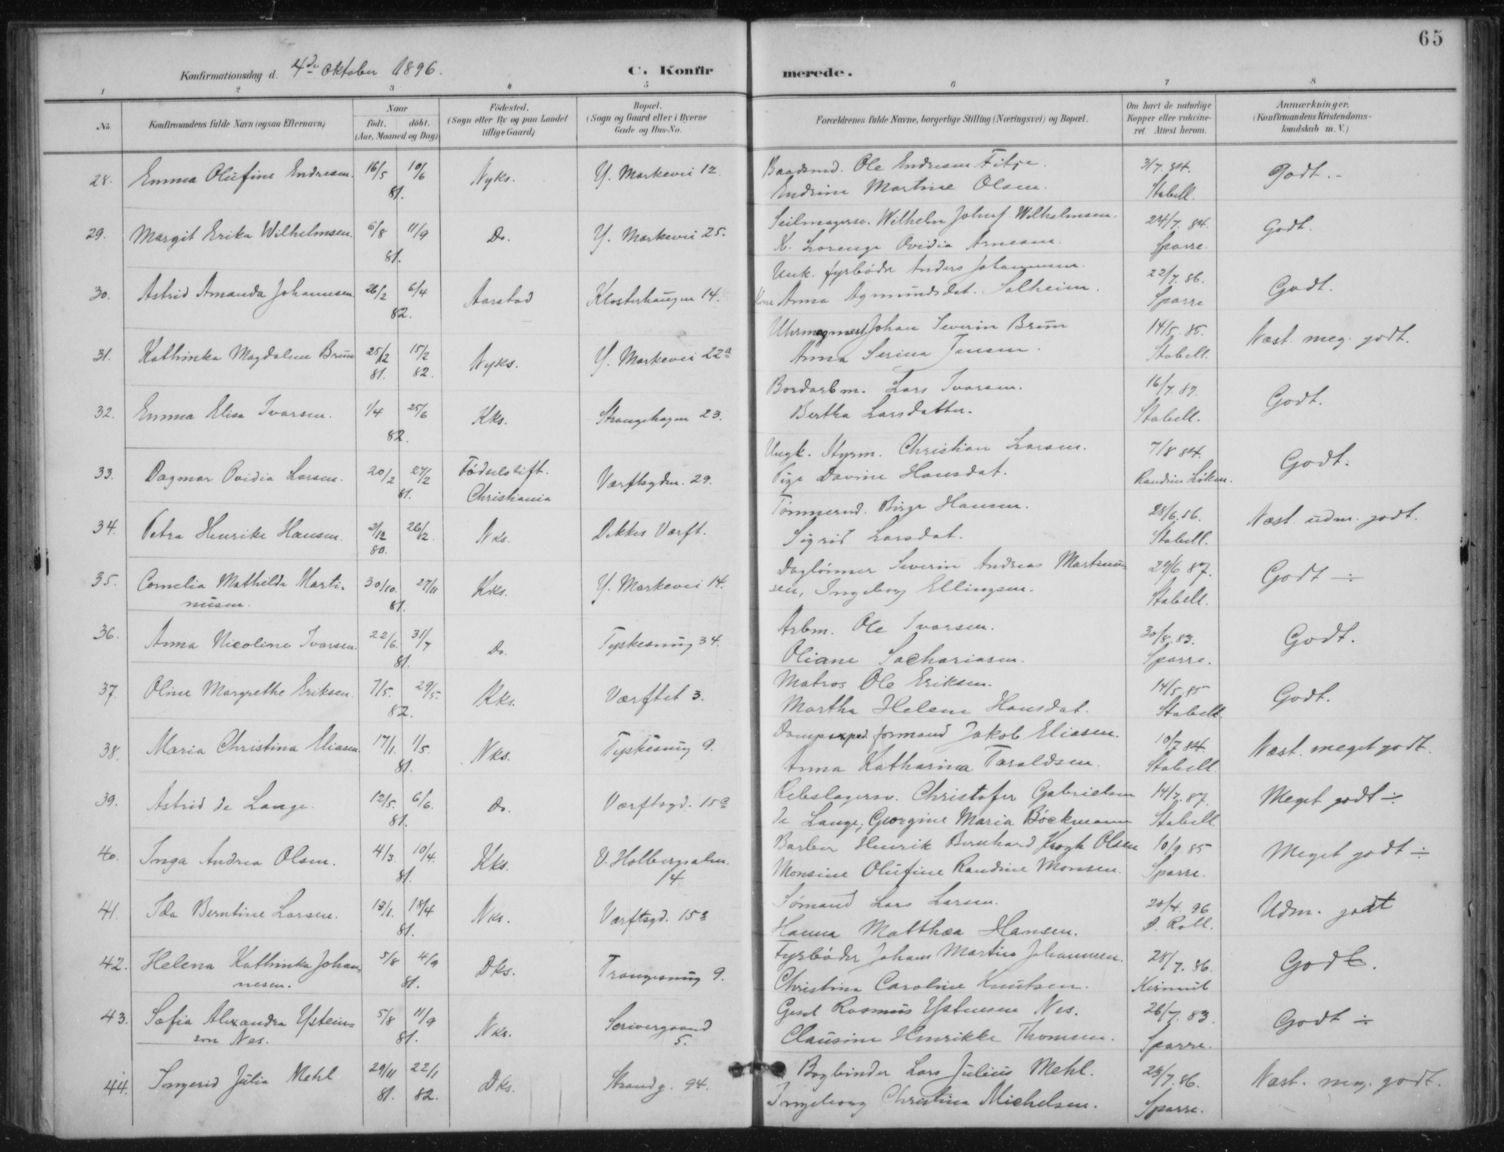 65
Konfirmationsdag d. 4de Oktober 1896.
C. Konfirmerede.
1 2 3 4 5 6 7 8
No.
Konfirmandens fulde Navn (ogsaa Efternavn)
Naar
født. døbt.
(Aar, Maaned og Dag)
Fødested.
(Sogn eller By og paa Landet
tillige Gaard)
Bopæl.
(Sogn og Gaard eller i Byerne
Gade og Hus-No.
Forældrenes fulde Navne, borgerlige Stilling (Næringsvei) og Bopæl.
Om havt de naturlige
Kopper eller vaccine-
ret. Attest herom.
Anmærkninger.
(Konfirmandens Kristendoms-
kundskab m. V.)
28. Emma Olufine Endresen. 16/5 10/6 Nyks. Y. Markevei 12 Baadsmd. Ole Endresen Fitje. 3/7. 84. Godt.
81. Endrine Martine Olsen. Stabell.
29. Margit Erika Wilhelmsen. 6/8 11/9 Do. Y. Markevei 25. Seilmagersv. Wilhelm Johnf Wilhelmsen. 24/7. 84. Godt.
81. K. Lorenze Ovidia Arnesen. Sparre.
30. Astrid Amanda Johannesen 26/2 6/4 Aarstad Klosterhaugen 14. Unk. fyrbøder Anders Johannesen. 22/7. 86. Godt.
82. Anna Agmundsdat. Solheim. Sparre
31. Kathinka Magdalene Bruun 25/12 15/2 Nyks. Y. Markevei 22a Uhrmager Johan Severin Bruun 14/5. 85. Næst meg. godt.
81. 82. Anna Serina Jensen. Stabell.
32. Emma Elisa Ivarsen. 1/4 25/6 Kks. Strangehagen 23. Bordarbm. Lars Ivarsen. 16/7. 87. Godt.
82. Bertha Larsdatter. Stabell.
33. Dagmar Ovidia Larsen. 20/2 27/2 Fødselsstift. Værftsgdn. 29. Ungk. Styrm. Christian Larsen. 7/8 84. Godt.
81. Christiania Pige Davine Hansdat. Randine Løken.
34. Petra Henrike Hansen. 2/12 26/2 Nks. Dekkes Værft. Tømmermd. Birge Hansen. 28/6. 86. Næst udm. godt.
80. Sigrid Larsdat. Stabell.
35. Cornelia Mathilde Marti- 30/10. 27/11 Kks. Y. Markevei 14. Dagløner Severin Andreas Martinus- 29/6 87. Godt ÷
nusen. 81. sen, Ingeborg Ellingsen. Stabell.
36. Anna Nicoline Ivarsen 22/6. 31/7 Do. Tyskesmug 34. Arbm. Ole Ivarsen. 30/8. 83. Godt.
81. Oliane Sachariasen. Sparre.
37. Oline Margrethe Eriksen. 7/5. 29/5. Kks. Værftet 3. Matros Ole Eriksen. 14/5. 85 Godt.
82. Martha Helene Hansdat. Stabell
38. Maria Christina Eliasen. 17/1. 1/5 Nks. Tyskesmug 9. Dampexped. formand Jakob Eliasen. 10/7 84. Næst meget godt.
81. Anna Katharina Taraldsen. Stabell.
39. Astrid de Lange. 12/5. 6/6. Do. Værftsgd. 15a Rebslagersv. Christofer Gabrielsen 14/7. 87. Meget godt ÷
81. de Lange, Georgine Maria Böckmann Stabell
40. Inga Andrea Olsen. 4/3 10/4. Kks. V. Holbergsalm. Barber Henrik Bernhard Krogh Olsen 10/9 85 Meget godt ÷
81. 14 Monsine Olufine Randine Monsen. Sparre.
41. Ida Berntine Larsen. 13/1. 18/4 Nks. Værftsgd. 15a Sømand Lars Larsen. 20/4. 96 Udm. godt
81. Hanna Matthea Hansen. D. Roll.
42. Helena Kathinka Johan- 5/8 4/9 Dks. Trangesmug 9. Fyrbøder Johan Martin Johannesen. 28/7. 86. Godt.
nesen. 81. Christina Caroline Knutsen.
43. Sofia Alexandra Ysteins 5/8 11/9 Nks. Scrivergaard Gesel Rasmus Ystensen Nes. 26/7. 83. Godt ÷
sen Nes. 81. 5. Clausine Henrikke Thomsen. Sparre.
44. Ingerid Julia Mehl 29/11 22/1 Dks. Strandg. 94. Bogbinder Lars Julius Mehl. 28/7. 86. Næst. meg. godt.
81. 82. Ingeborg Christina Michelsen. Sparre.